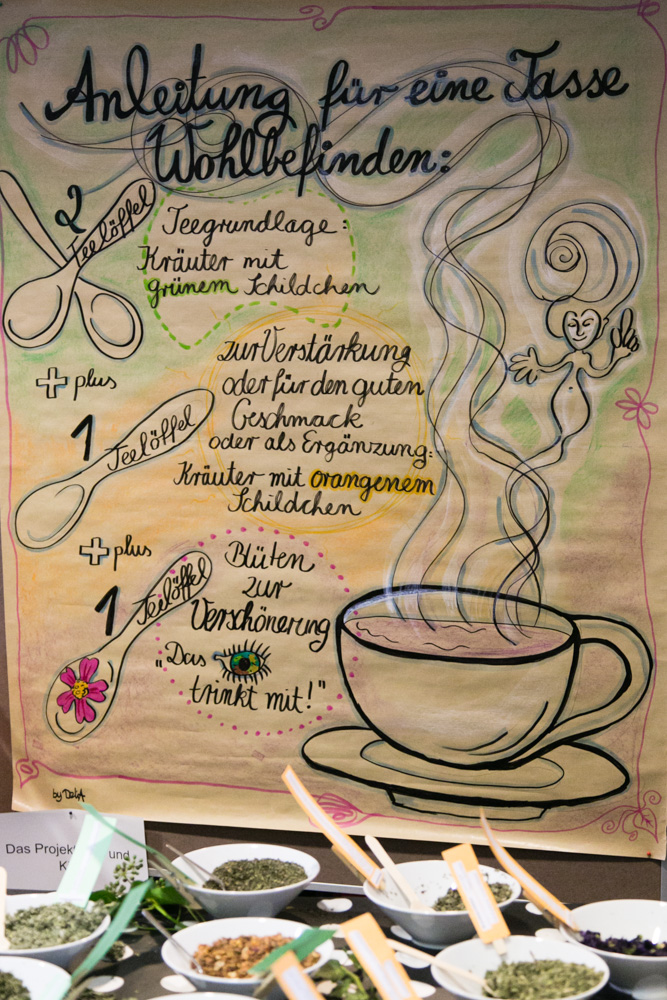 Anleitung für eine Tasse
Wohlbefinden:
2 Teelöffel
Teegrundlage:
Kräuter mit
grünem Schildchen
+ plus
1 Teelöffel
zur Verstärkung
oder für den guten
Geschmack
oder als Ergänzung:
Kräuter mit orangenem
Schildchen
+ plus
1 Teelöffel
Blüten
zur
Verschönerung
„Das
trinkt mit!"
Das Projekt und